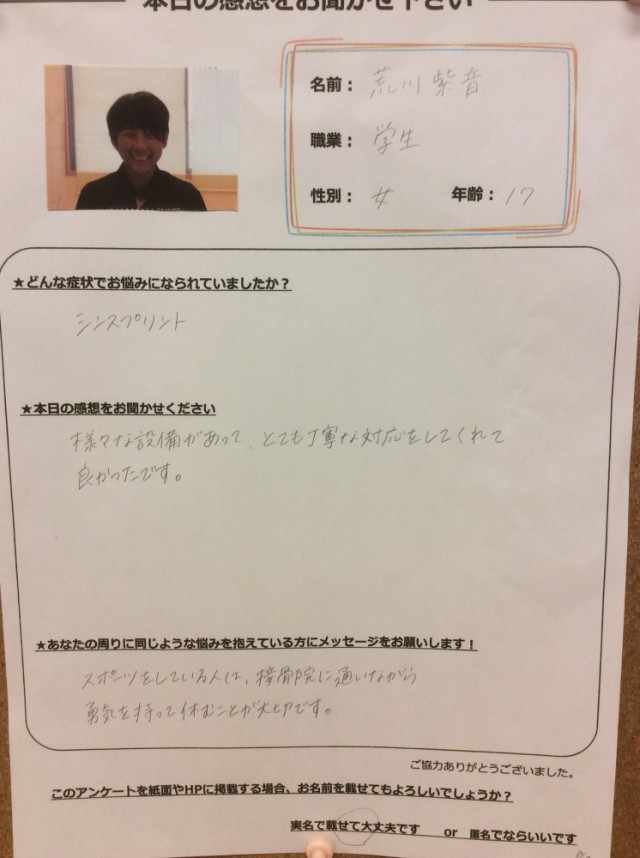 本日の感想をお聞かせ下さい
名前： 荒川 紫音
職業： 学生
性別： 女 年齢： 17
★どんな症状でお悩みになられていましたか？
シンスプリント
★本日の感想をお聞かせください
様々な設備があって、とても丁寧な対応をしてくれて
良かったです。
★あなたの周りに同じような悩みを抱えている方にメッセージをお願いします！
スポーツをしている人は、接骨院に通いながら
勇気を持って休むことが大切です。
ご協力ありがとうございました。
このアンケートを紙面やHPに掲載する場合、お名前を載せてもよろしいでしょうか？
実名で載せて大丈夫です or 匿名でならいいです